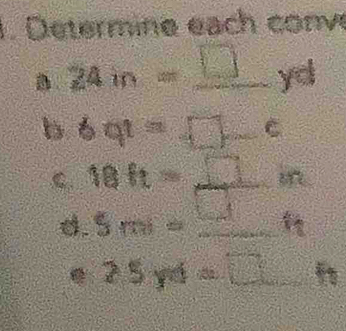 1. Determine each conve
a. 24 in = ___ yd
b. 6 qt = ___ c
c. 18 ft = ___ in
d. 5 mi = ___ ft
e 2.5 yd = ___ ft